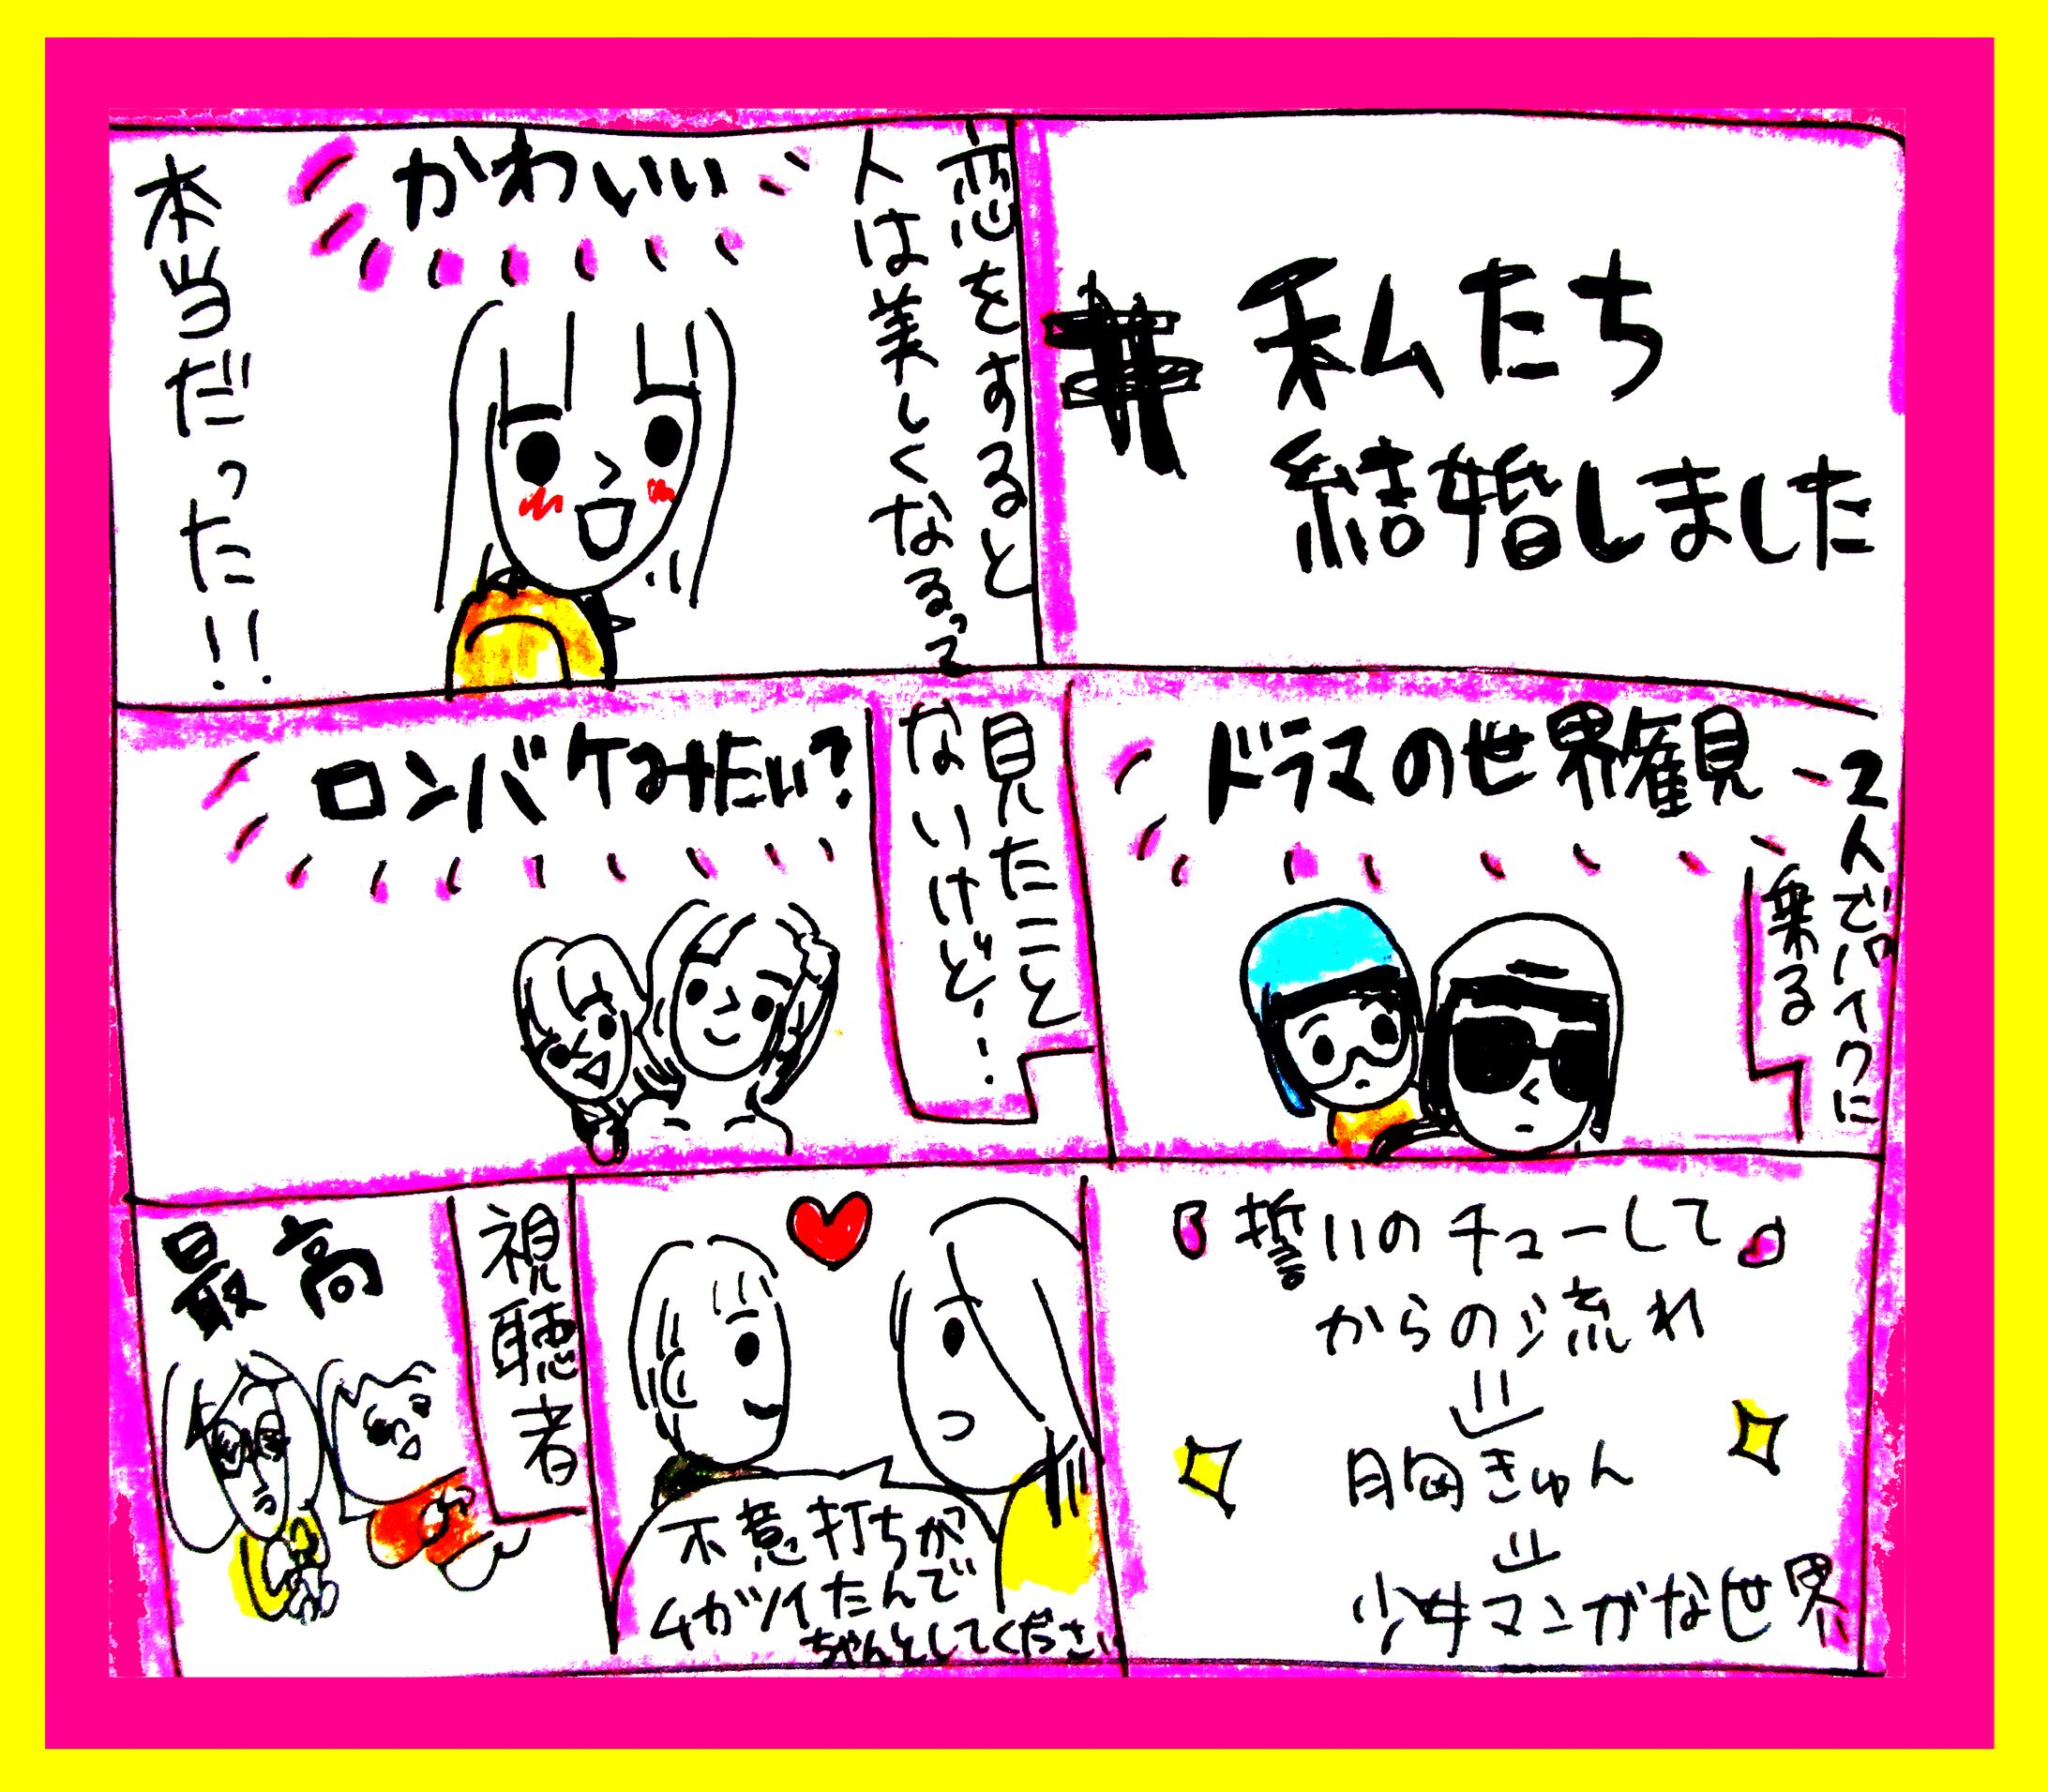 #私たち
結婚しました
恋をすると
人は美しくなるって
かわいい
本当だった!!
2人でバイクに
乗る
ドラマの世界観
見たこと
ないけど!
ロンバケみたい?
誓いのチューして
からの流れ
胸きゅん
少女マンガな世界
不意打ちが
ムカツイたんで
ちゃんとしてください
視聴者
最高